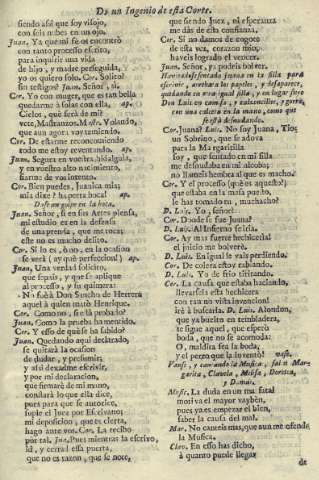 De un Ingenio de esta Corte.
siendo assi que soy viejo,
con solo nubes en un ojo.
Juan. Ya que aqui se os encontrò
con tanto processo escrito,
para inquirir una vida
de hijo, y madre perseguida,
yo os quiero solo. Cor. Solito?
sin testigos? Juan. Señor, si.
Cor. Yo con muger, que es tan bella
quedarme à solas con ella, ap.
Cielos, què serà de mi?
vete, Mastranzos. Mast. Volando,
que aun agora voy temiendo.
Cor. De estarme reconociendo
todo me estoy
Juan. Segura en vuestra hidalguia,
y en vuestro alto nacimiento,
fiarme de vos intento.
Cor. Bien puedes, Juanica mia;
mia dixe? ha perra boca! ap.
Dase un golpe en la boca.
Juan. Señor, si en sus Artes piensa,
mi estudio es en la defensa
de una prenda, que me toca;
este no es mucho delito.
Cor. Si lo es, ò no, en la ocasion
se verà (ay què perfeccion!) ap.
Juan. Una verdad solicito,
que sepais, y que se aplique
al processo, y su quimera:
No fuè à Don Sancho de Herrera
aquel à quien matò Henrique.
Cor. Como no, si està probado?
Juan. Como la prueba ha mentido.
Cor. Y esso de què se ha sabido?
Juan. Quedando aqui declarado,
se quitarà la ocasion
de dudar, y presumir;
y assi dexadme escrivir,
y por mi declaracion,
que firmarè de mi mano,
constarà lo que ella dice,
pues para que se autorice,
suple el Juez por Escrivano;
mi deposicion, que es cierta,
hago ante vos. Cor. La recibo
por tal. Juan. Pues mientras la escrivo,
id, y cerrad essa puerta,
que no es razon, que se note,
que siendo Juez, ni esperanza
me dàs de esta confianza.
Cor. Si no damos de cogote
de esta vez, corazon mio,
haveis logrado el vencer.
Juan. Señor, ya podeis bolver.
Havrase sentado Juana en la silla para
escrivir, arrebata los papeles, y desaparece,
quedando en una igual silla, y en lugar suyo
Don Luis en camisa, y calzoncillos, y gorra,
con una caxeta en la mano, con que
se està desnudando.
Cor. Juana? Luis. No soy Juana, Tio;
un Sobrino, que se adora
para la Margaritilla
soy, que sentado en mi silla
me desnudaba en mi alcoba;
no haveis hembra al que es macho?
Cor. Y el processo (què os aquesto?)
que estaba en la mesa puesto,
le has tomado tu, muchacho?
D. Luis. Yo, señor?
Cor. Donde se fuè Juana?
D. Luis. Al Infierno se iria.
Cor. Ay mas fuerte hechiceria!
el juicio me bolverè.
D. Luis. En igual le vais perdiendo.
Cor. De colera estoy rabiando.
D. Luis. Yo de frio tiritando.
Cor. La causa que estaba haciendo,
llevarsela esta hechicera
con tan no vista invencion!
irè à buscarla. D. Luis. Atendon,
que ya buelto en tembladera,
te sigue aquel, que esperò
boda, que no se acomoda:
O, maldita sea la boda,
y el perro que la inventò! vase.
Vanse, y cantando la Musica, sale Mar-
garita, Clavela, Musica, Dorista,
y Damas.
Music. La duda en un mal fatal
motiva el mayor vayben,
pues ya es empezar el bien,
saber la causa del mal.
Mar. No canteis mas, que aun me ofende
la Musica.
Clav. En esso has dicho,
à quanto puede llegar
de